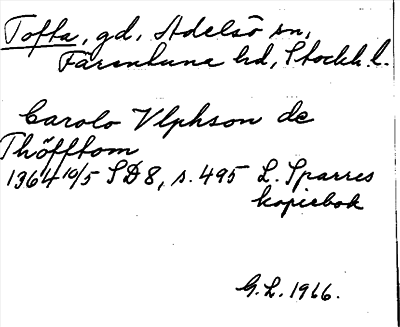 Tofta, gd, Adelsö sn,
Färentuna hd, Stockh. l.
Carolo Vlphson de
Thöfftom
1364 10/5 SD 8, s. 495 L. Sparres
kopiebok
G.L. 1966.